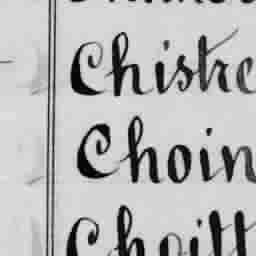 Chistre
Choin
Choitt